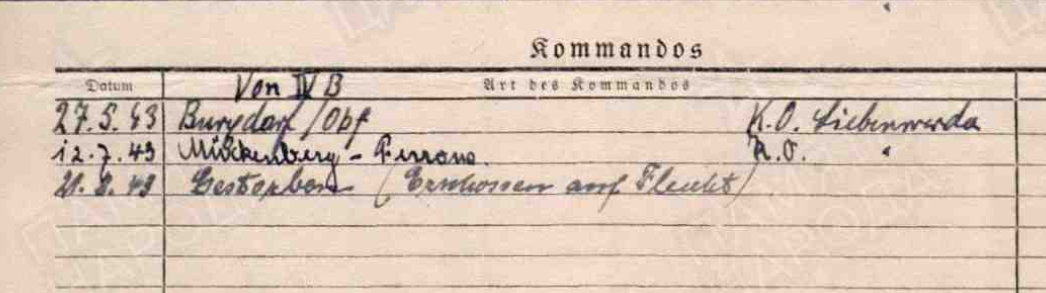 Kommandos
Datum Art des Kommandos
Von IV B
27.5.43 Burgdorf / K.O. Liebenwerda
12.7.43 Mückenberg - K.O. "
21.8.43 Gestorben (Erschossen auf Flucht)